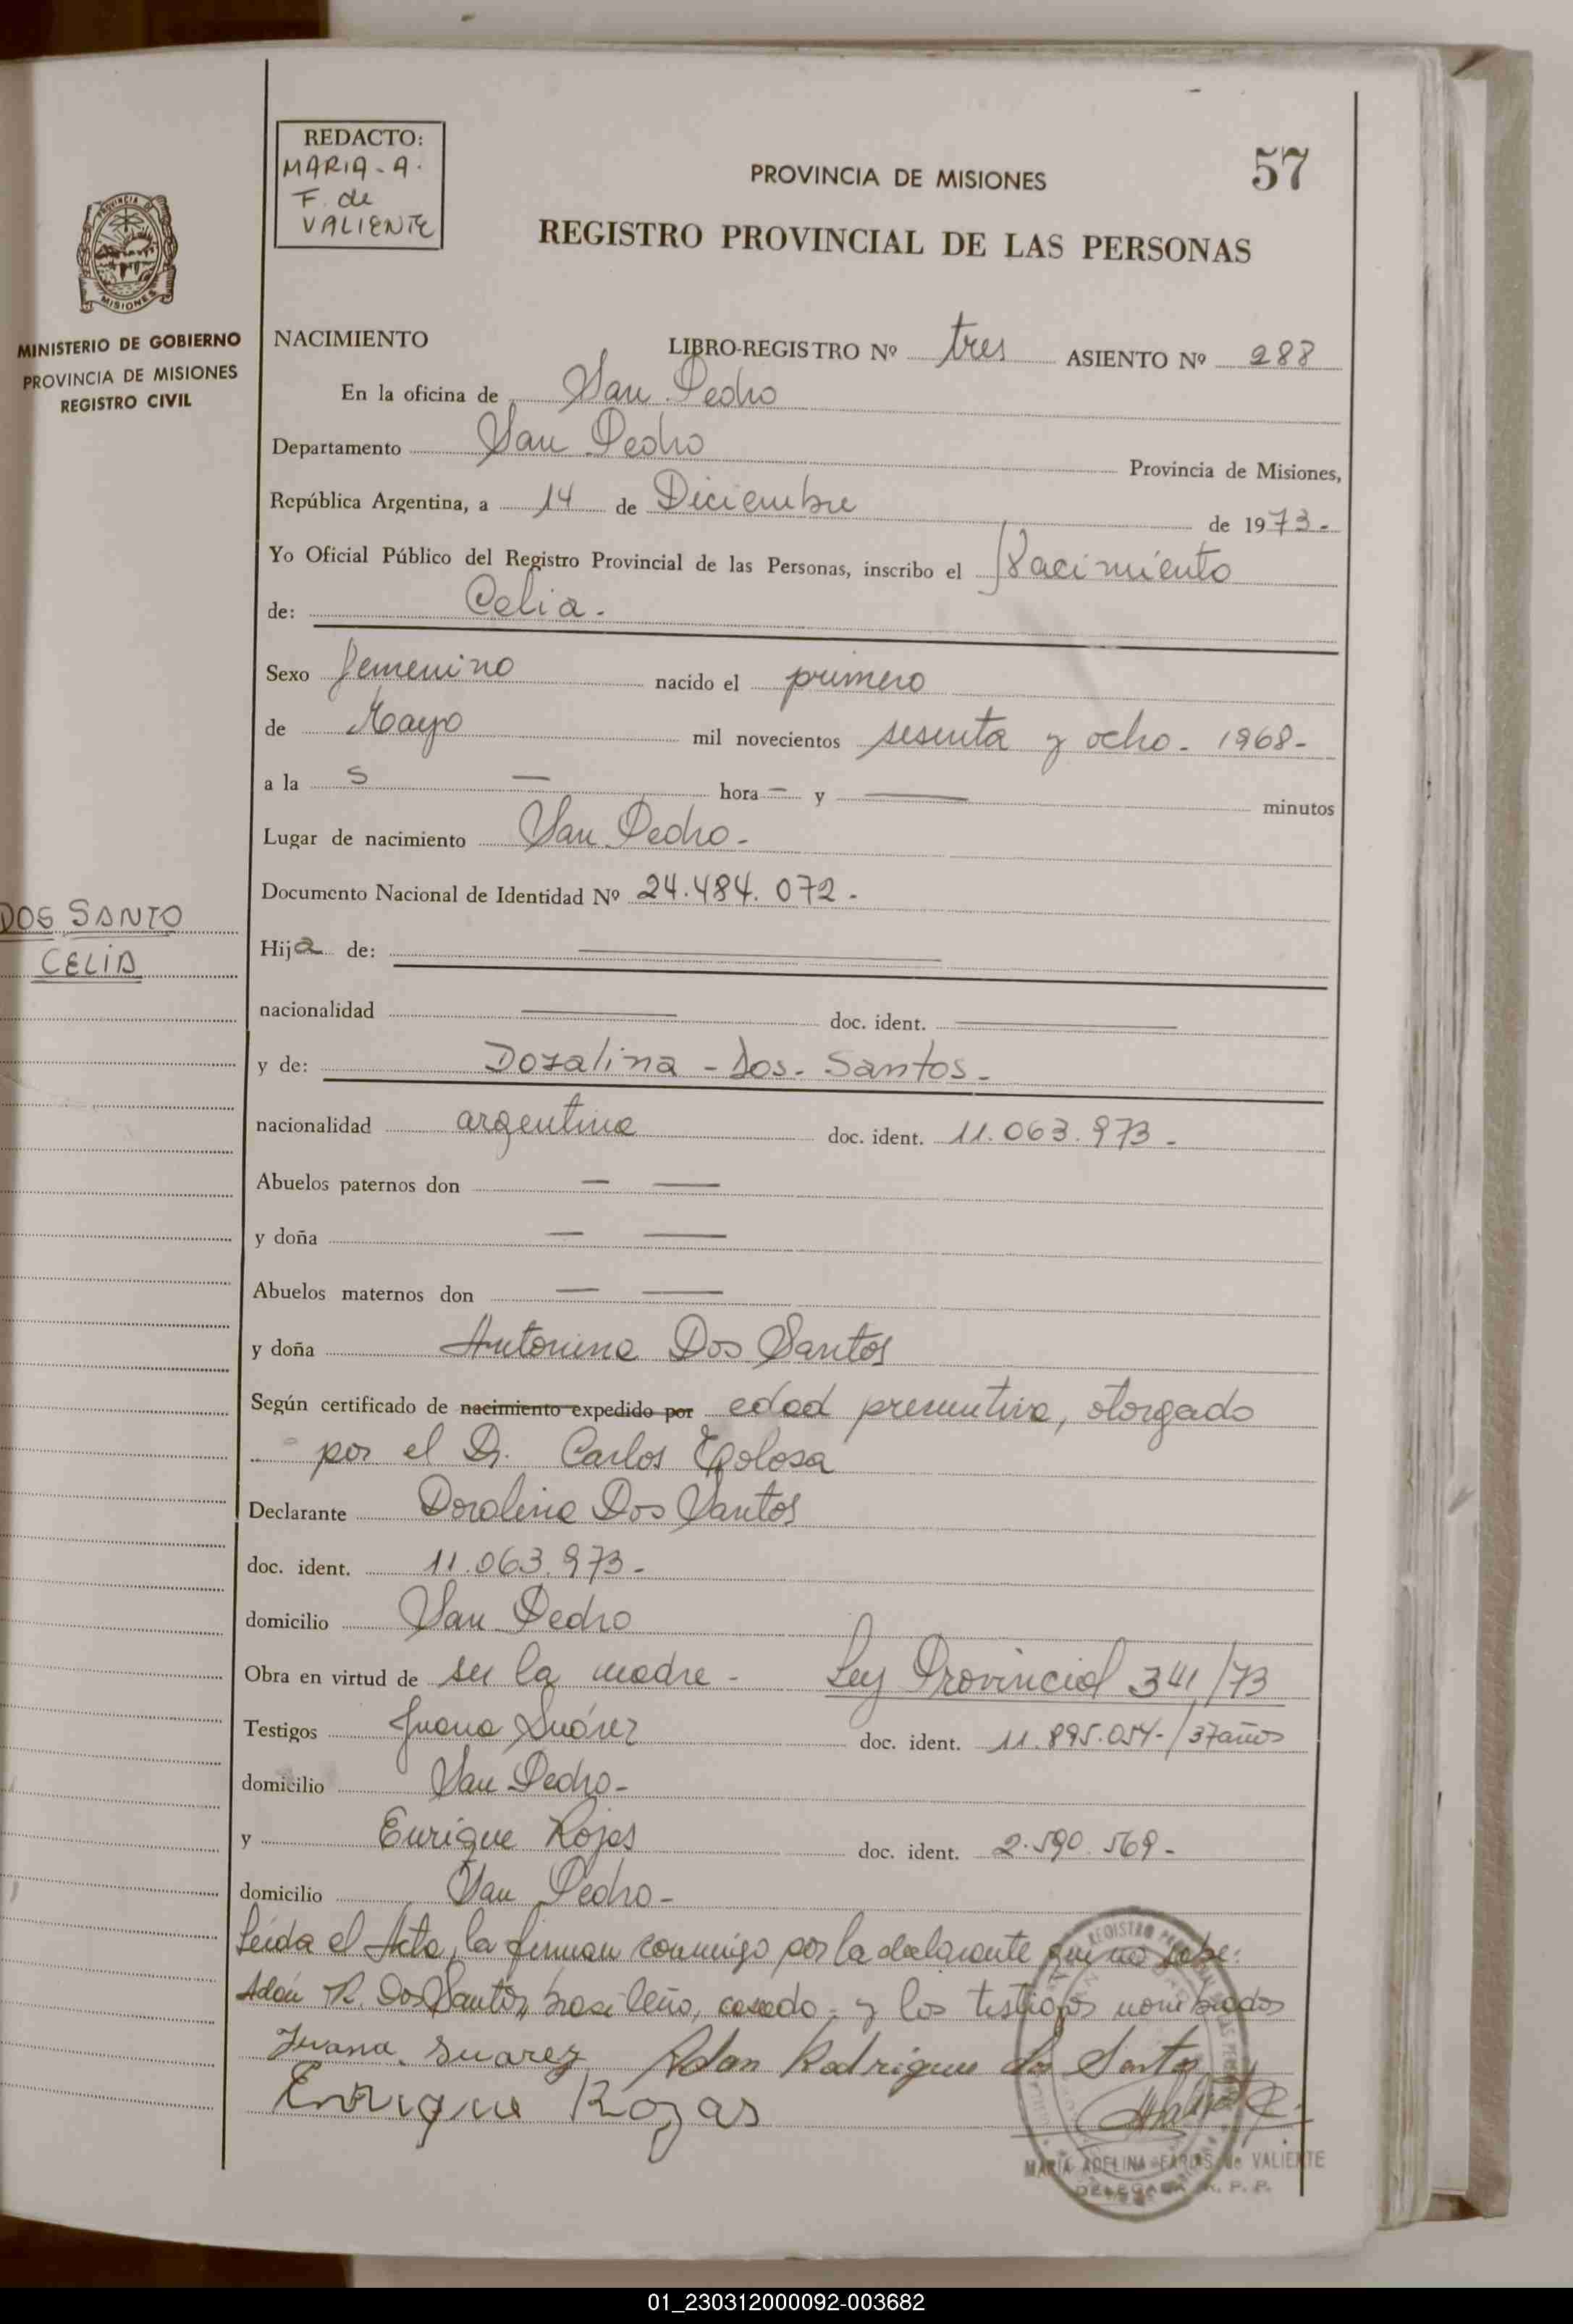 REDACTO:
MARIA-A.
F. de
VALIENTE
PROVINCIA DE MISIONES
57
REGISTRO PROVINCIAL DE LAS PERSONAS
PROVINCIA DE
MISIONES
MINISTERIO DE GOBIERNO
PROVINCIA DE MISIONES
REGISTRO CIVIL
NACIMIENTO LIBRO-REGISTRO Nº tres ASIENTO Nº 288
En la oficina de San Pedro
Departamento San Pedro Provincia de Misiones,
República Argentina, a 14 de Diciembre de 1973-
Yo Oficial Público del Registro Provincial de las Personas, inscribo el Nacimiento
de: Celia.
Sexo femenino nacido el primero
de Mayo mil novecientos sesenta y ocho- 1968-
a la s — hora — y — minutos
Lugar de nacimiento San Pedro-
Documento Nacional de Identidad Nº 24.484.072-
DOS SANTO
CELIA
Hija de: —
nacionalidad — doc. ident. —
y de: Doralina - Dos- Santos-
nacionalidad argentina doc. ident. 11.063.973-
Abuelos paternos don — —
y doña — —
Abuelos maternos don — —
y doña Antonina Dos Santos
Según certificado de nacimiento expedido por edad presuntiva, otorgado
por el Dr. Carlos Tolosa
Declarante Doralina Dos Santos
doc. ident. 11.063.973-
domicilio San Pedro
Obra en virtud de ser la madre- Ley Provincial 341/73
Testigos Juana Suárez doc. ident. 11.895.054-/37años
domicilio San Pedro-
y Enrique Rojas doc. ident. 2.590.569-
domicilio San Pedro-
Leída el Acta, la firman conmigo por la declarante que no sabe:
Adán R. Dos Santos, brasileño, casado- y los testigos nombrados
Juana Suarez Adan Rodrigues dos Santos
Enrique Rojas
MARIA ADELINA FARIAS de VALIENTE
DELEGADA R. P. P.
01_230312000092-003682